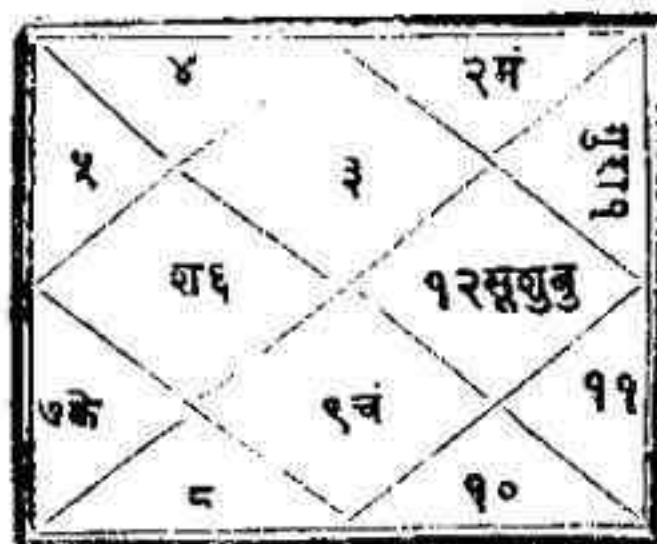 ४
२मं
५
३
गुरा१
श६
१२सूशुबु
७के
९चं
११
८
१०